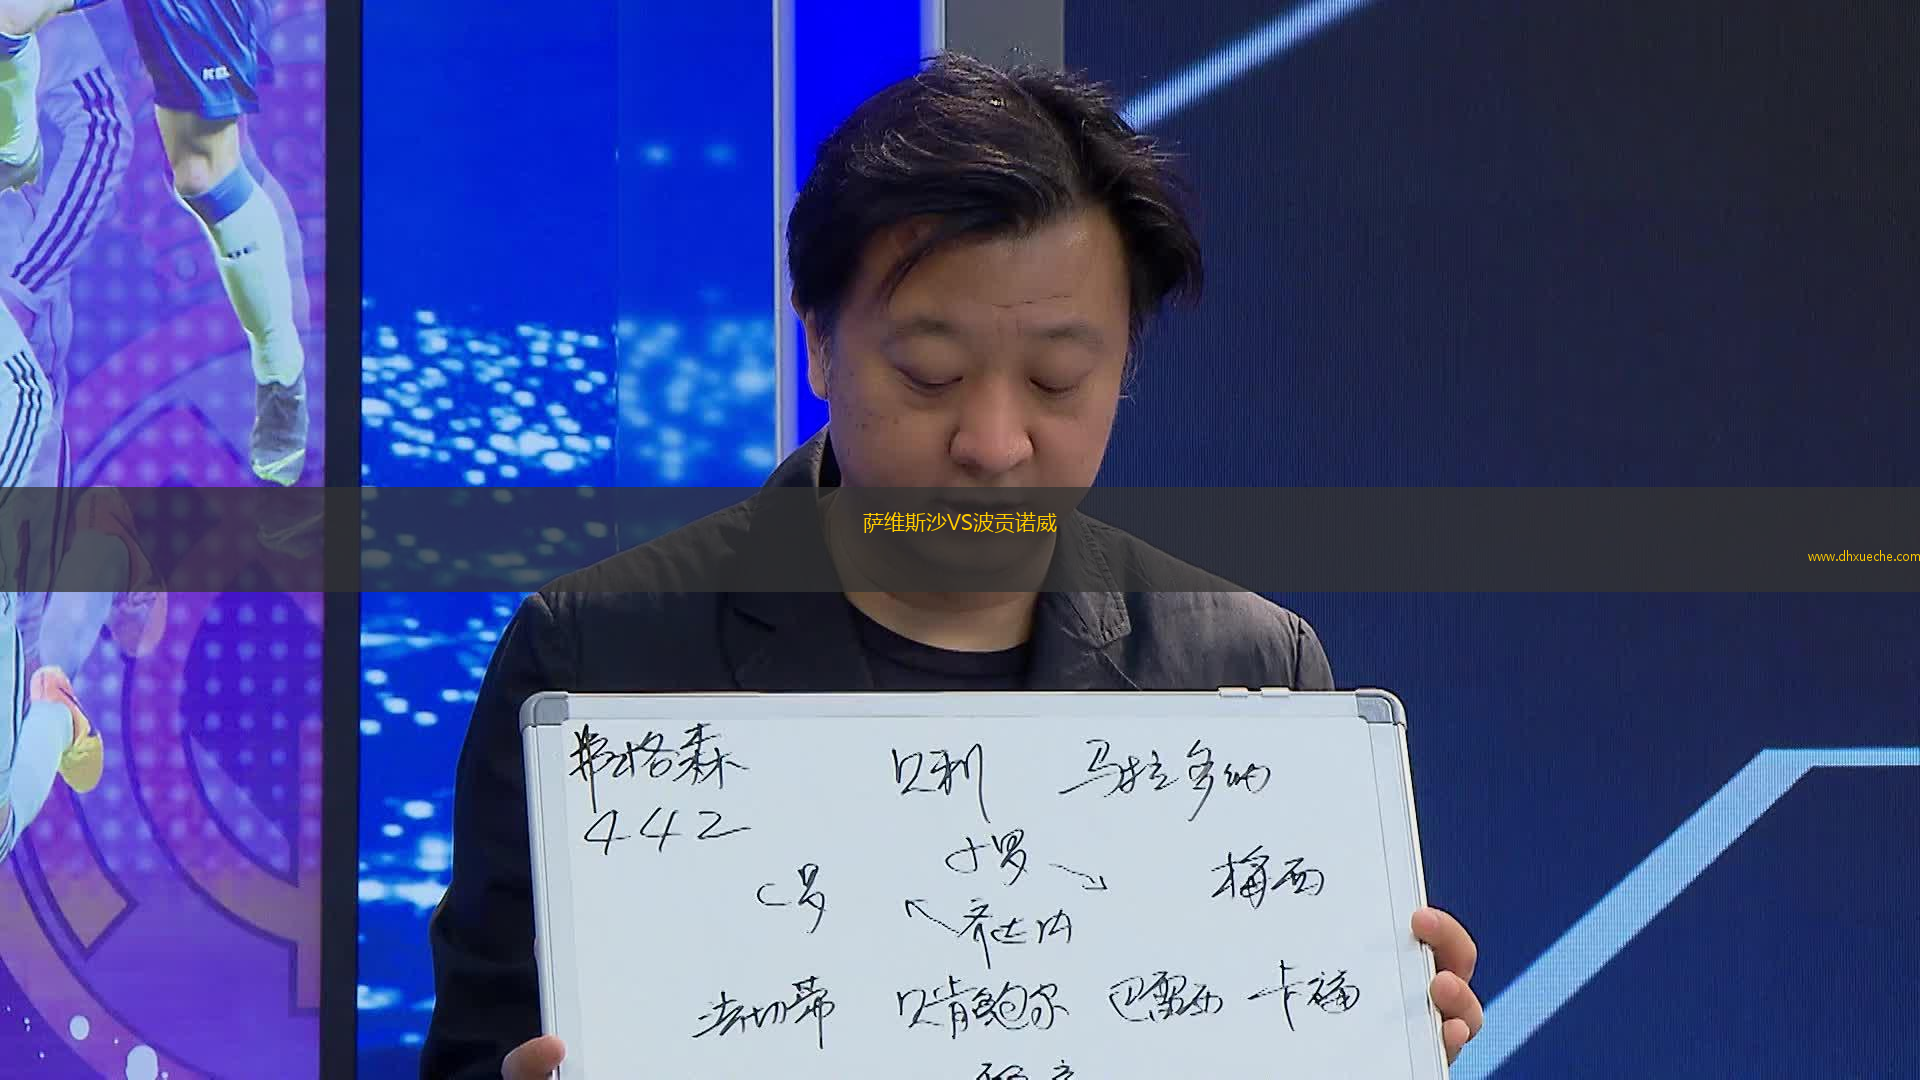 KELME
萨维斯沙VS波贡诺威
www.dhxueche.com
弗格森 贝利 马拉多纳
442
小罗
C罗 梅西
齐达内
法切蒂 贝肯鲍尔 巴雷西 卡福